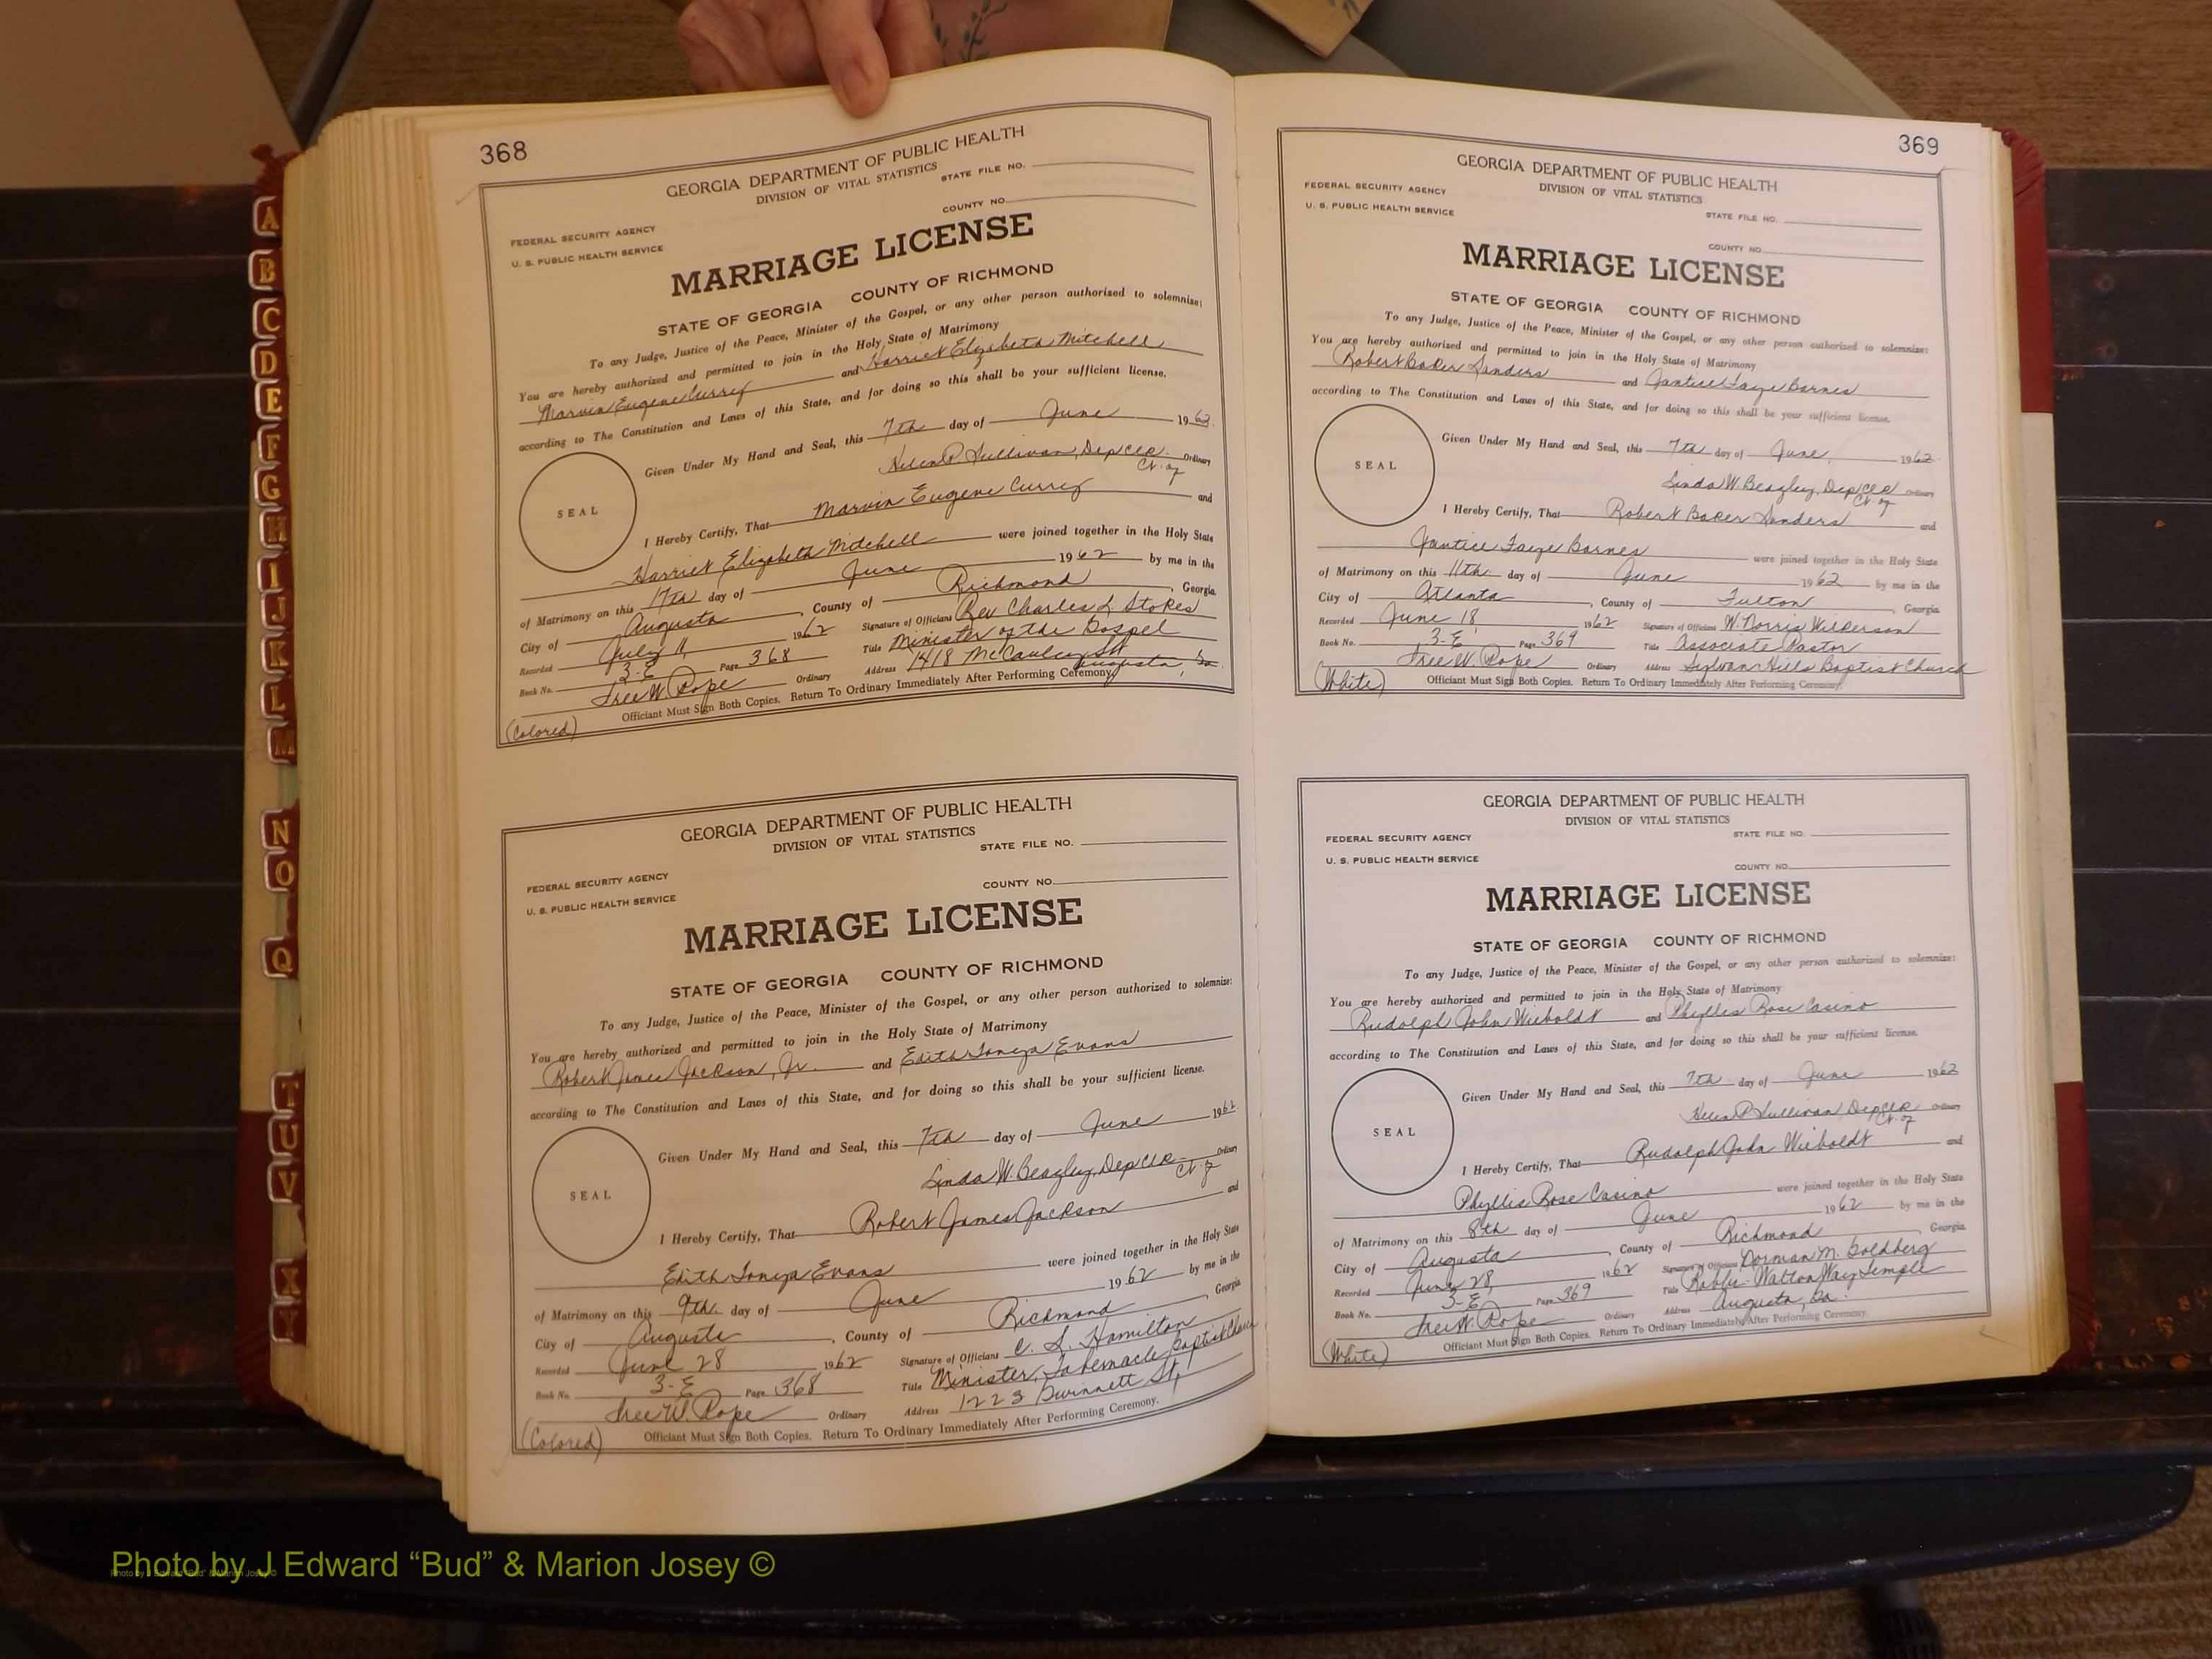 368
GEORGIA DEPARTMENT OF PUBLIC HEALTH
DIVISION OF VITAL STATISTICS
STATE FILE NO.
FEDERAL SECURITY AGENCY
COUNTY NO.
U. S. PUBLIC HEALTH SERVICE
MARRIAGE LICENSE
STATE OF GEORGIA COUNTY OF RICHMOND
To any Judge, Justice of the Peace, Minister of the Gospel, or any other person authorized to solemnize:
You are hereby authorized and permitted to join in the Holy State of Matrimony
Marvin Eugene Currey and Harriet Elizabeth Mitchell
according to The Constitution and Laws of this State, and for doing so this shall be your sufficient license.
Given Under My Hand and Seal, this 7th day of June 1962
Helen P. Sullivan, Dep Clk Ordinary
Ct. of
SEAL
I Hereby Certify, That Marvin Eugene Currey and
Harriet Elizabeth Mitchell were joined together in the Holy State
of Matrimony on this 17th day of June 1962 by me in the
City of Augusta, County of Richmond, Georgia.
Recorded July 11, 1962 Signature of Officiant Rev Charles L. Stokes
Book No. 3-E Page 368 Title Minister of the Gospel
Tree W. Pope Ordinary Address 1418 McCauley St
Augusta, Ga.
Officiant Must Sign Both Copies. Return To Ordinary Immediately After Performing Ceremony.
(Colored)
GEORGIA DEPARTMENT OF PUBLIC HEALTH
DIVISION OF VITAL STATISTICS
STATE FILE NO.
FEDERAL SECURITY AGENCY
COUNTY NO.
U. S. PUBLIC HEALTH SERVICE
MARRIAGE LICENSE
STATE OF GEORGIA COUNTY OF RICHMOND
To any Judge, Justice of the Peace, Minister of the Gospel, or any other person authorized to solemnize:
You are hereby authorized and permitted to join in the Holy State of Matrimony
Robert James Jackson, Jr. and Edith Evans
according to The Constitution and Laws of this State, and for doing so this shall be your sufficient license.
Given Under My Hand and Seal, this 7th day of June 1962
Linda W. Beazley, Dep Clk Ordinary
Ct. of
SEAL
I Hereby Certify, That Robert James Jackson and
Edith Evans were joined together in the Holy State
of Matrimony on this 9th day of June 1962 by me in the
City of Augusta, County of Richmond, Georgia
Recorded June 28 1962 Signature of Officiant C. S. Hamilton
Book No. 3-E Page 368 Title Minister, Tabernacle Baptist Church
Tree W. Pope Ordinary Address 1223 Gwinnett St,
Officiant Must Sign Both Copies. Return To Ordinary Immediately After Performing Ceremony.
(Colored)
369
GEORGIA DEPARTMENT OF PUBLIC HEALTH
FEDERAL SECURITY AGENCY
DIVISION OF VITAL STATISTICS
U. S. PUBLIC HEALTH SERVICE
STATE FILE NO.
COUNTY NO.
MARRIAGE LICENSE
STATE OF GEORGIA COUNTY OF RICHMOND
To any Judge, Justice of the Peace, Minister of the Gospel, or any other person authorized to solemnize:
You are hereby authorized and permitted to join in the Holy State of Matrimony
Robert Baker Sanders and Jantice Faye Barnes
according to The Constitution and Laws of this State, and for doing so this shall be your sufficient license.
Given Under My Hand and Seal, this 7th day of June, 1962
Linda W. Beazley, Dep Clk Ordinary
Ct. of
SEAL
I Hereby Certify, That Robert Baker Sanders and
Jantice Faye Barnes were joined together in the Holy State
of Matrimony on this 11th day of June 1962 by me in the
City of Atlanta, County of Fulton, Georgia
Recorded June 18 1962 Signature of Officiant W. Norris Wilkerson
Book No. 3-E Page 369 Title Associate Pastor
Tree W. Pope Ordinary Address Sylvan Hills Baptist Church
(White)
Officiant Must Sign Both Copies. Return To Ordinary Immediately After Performing Ceremony.
GEORGIA DEPARTMENT OF PUBLIC HEALTH
DIVISION OF VITAL STATISTICS
FEDERAL SECURITY AGENCY
STATE FILE NO.
U. S. PUBLIC HEALTH SERVICE
COUNTY NO.
MARRIAGE LICENSE
STATE OF GEORGIA COUNTY OF RICHMOND
To any Judge, Justice of the Peace, Minister of the Gospel, or any other person authorized to solemnize:
You are hereby authorized and permitted to join in the Holy State of Matrimony
Rudolph John Wieboldt and Phyllis Rose Casino
according to The Constitution and Laws of this State, and for doing so this shall be your sufficient license.
Given Under My Hand and Seal, this 7th day of June 1962
Helen P. Sullivan Dep Clk Ordinary
Ct. of
SEAL
I Hereby Certify, That Rudolph John Wieboldt and
Phyllis Rose Casino were joined together in the Holy State
of Matrimony on this 8th day of June 1962 by me in the
City of Augusta, County of Richmond Georgia
Recorded June 28, 1962 Signature of Officiant Norman M. Goldberg
Book No. 3-E Page 369 Title Rabbi-Walton Way Temple
Tree W. Pope Ordinary Address Augusta, Ga.
Officiant Must Sign Both Copies. Return To Ordinary Immediately After Performing Ceremony.
(White)
A
B
C
D
E
F
G
H
I
J
K
L
M
N
O
Q
T
U
V
X
Y
Photo by J Edward “Bud” & Marion Josey ©
Photo by J Edward “Bud” & Marion Josey ©